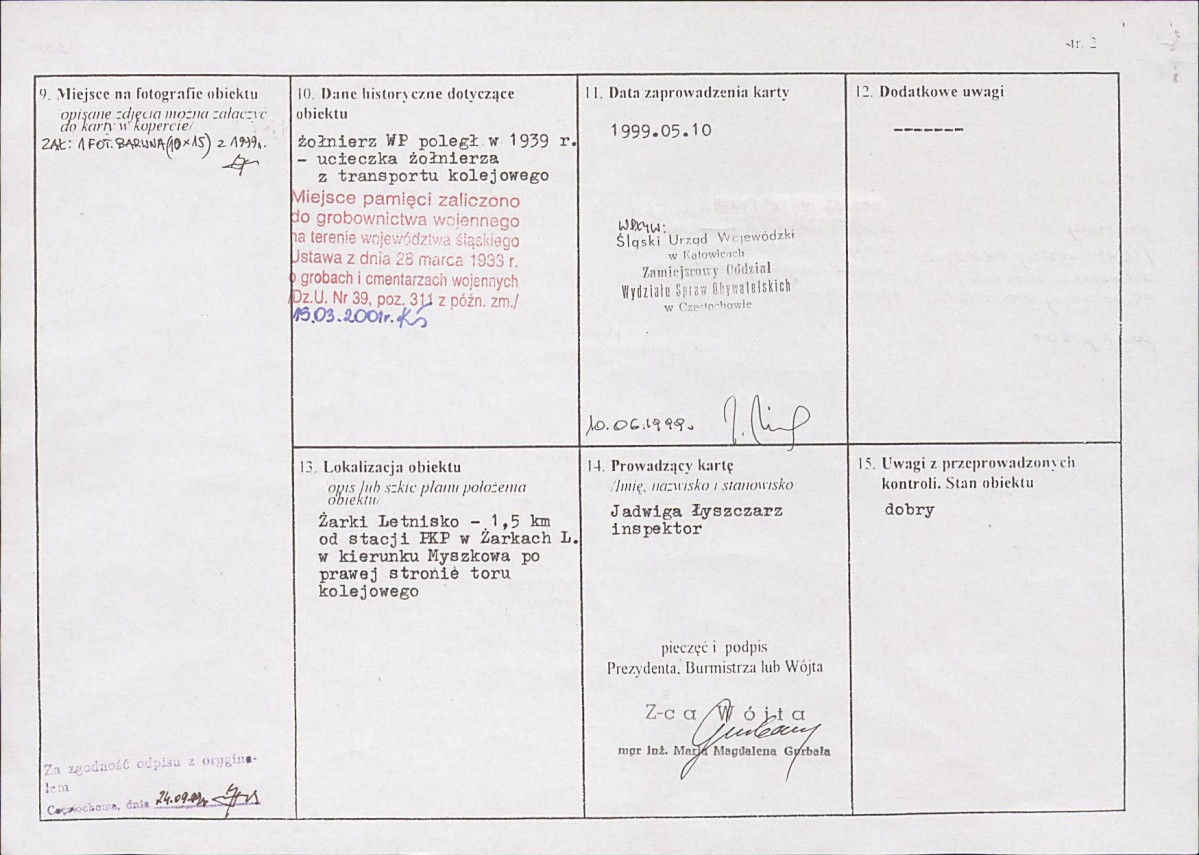 str. 2
9. Miejsce na fotografie obiektu
opisane zdjęcia można załączyć
do karty w kopercie/
ZAŁ: 1 FOT. BARWNA (10×15) z 1999r.
10. Dane historyczne dotyczące
obiektu
żołnierz WP poległ w 1939 r.
- ucieczka żołnierza
z transportu kolejowego
Miejsce pamięci zaliczono
do grobownictwa wojennego
na terenie województwa śląskiego
Ustawa z dnia 28 marca 1933 r.
o grobach i cmentarzach wojennych
/Dz.U. Nr 39, poz. 311 z późn. zm./
15.03.2001r. KŚ
11. Data zaprowadzenia karty
1999.05.10
WPŁYW:
Śląski Urząd Wojewódzki
w Katowicach
Zamiejscowy Oddział
Wydziału Spraw Obywatelskich
w Częstochowie
10.06.1999.
12. Dodatkowe uwagi
-------
13. Lokalizacja obiektu
opis lub szkic planu położenia
obiektu/
Żarki Letnisko - 1,5 km
od stacji PKP w Żarkach L.
w kierunku Myszkowa po
prawej stronie toru
kolejowego
14. Prowadzący kartę
/Imię, nazwisko i stanowisko/
Jadwiga Łyszczarz
inspektor
pieczęć i podpis
Prezydenta, Burmistrza lub Wójta
Z-ca Wójta
mgr inż. Maria Magdalena Gurbała
15. Uwagi z przeprowadzonych
kontroli. Stan obiektu
dobry
Za zgodność odpisu z orygina-
łem
Częstochowa, dnia 24.09.